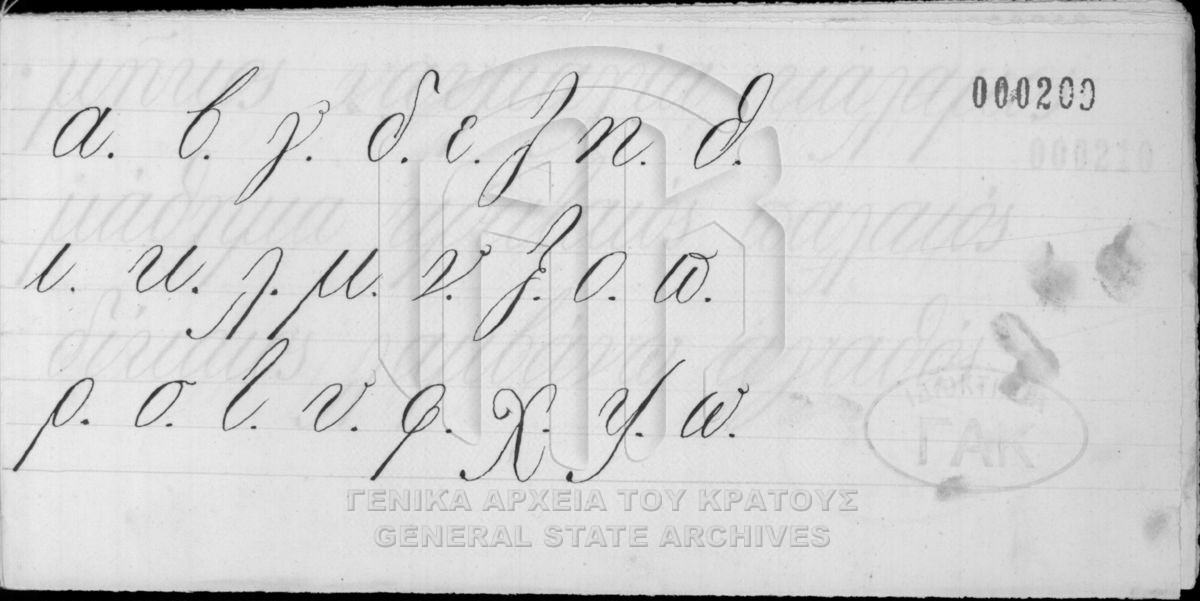 000209
α. β. γ. δ. ε. ζ. η. θ.
ι. κ. λ. μ. ν. ξ. ο. π.
ρ. σ. τ. υ. φ. χ. ψ. ω.
ΓΑΚ
ΓΕΝΙΚΑ ΑΡΧΕΙΑ ΤΟΥ ΚΡΑΤΟΥΣ
GENERAL STATE ARCHIVES